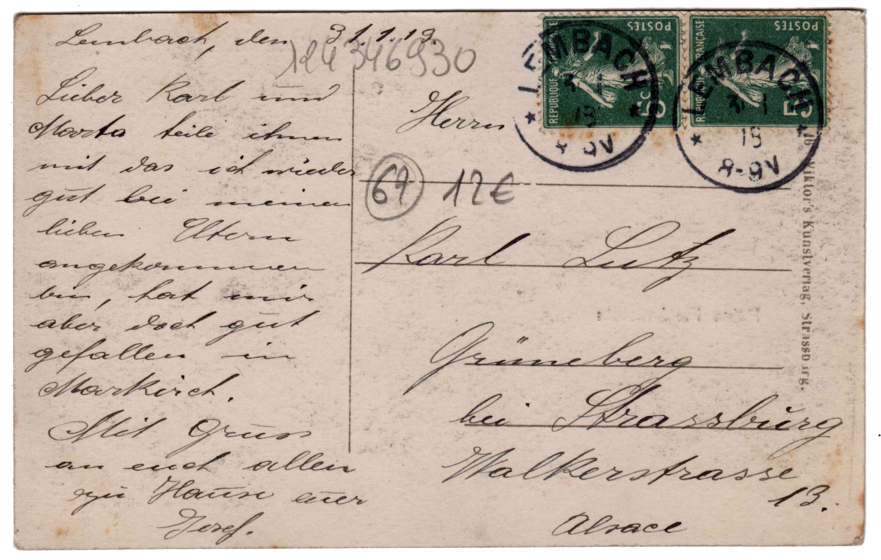 Lembach, den 31.1.19.
124346930
Lieber Karl und
Marta teile ihnen
mit das ich wieder
gut bei meinen
lieben Eltern
angekommen
bin, hat mir
aber doch gut
gefallen in
Markirch.
Mit Gruss
an euch allen
zu Hause euer
Josef.
Herrn
67 12€
Karl Lutz
Grüneberg
bei Strassburg
Walkerstrasse
13.
Alsace
LEMBACH
8-9V
LEMBACH
31 1
19
8-9V
REPUBLIQUE
POSTES
5
REPUBLIQUE FRANÇAISE
POSTES
5
Viktor's Kunstverlag, Strassburg.